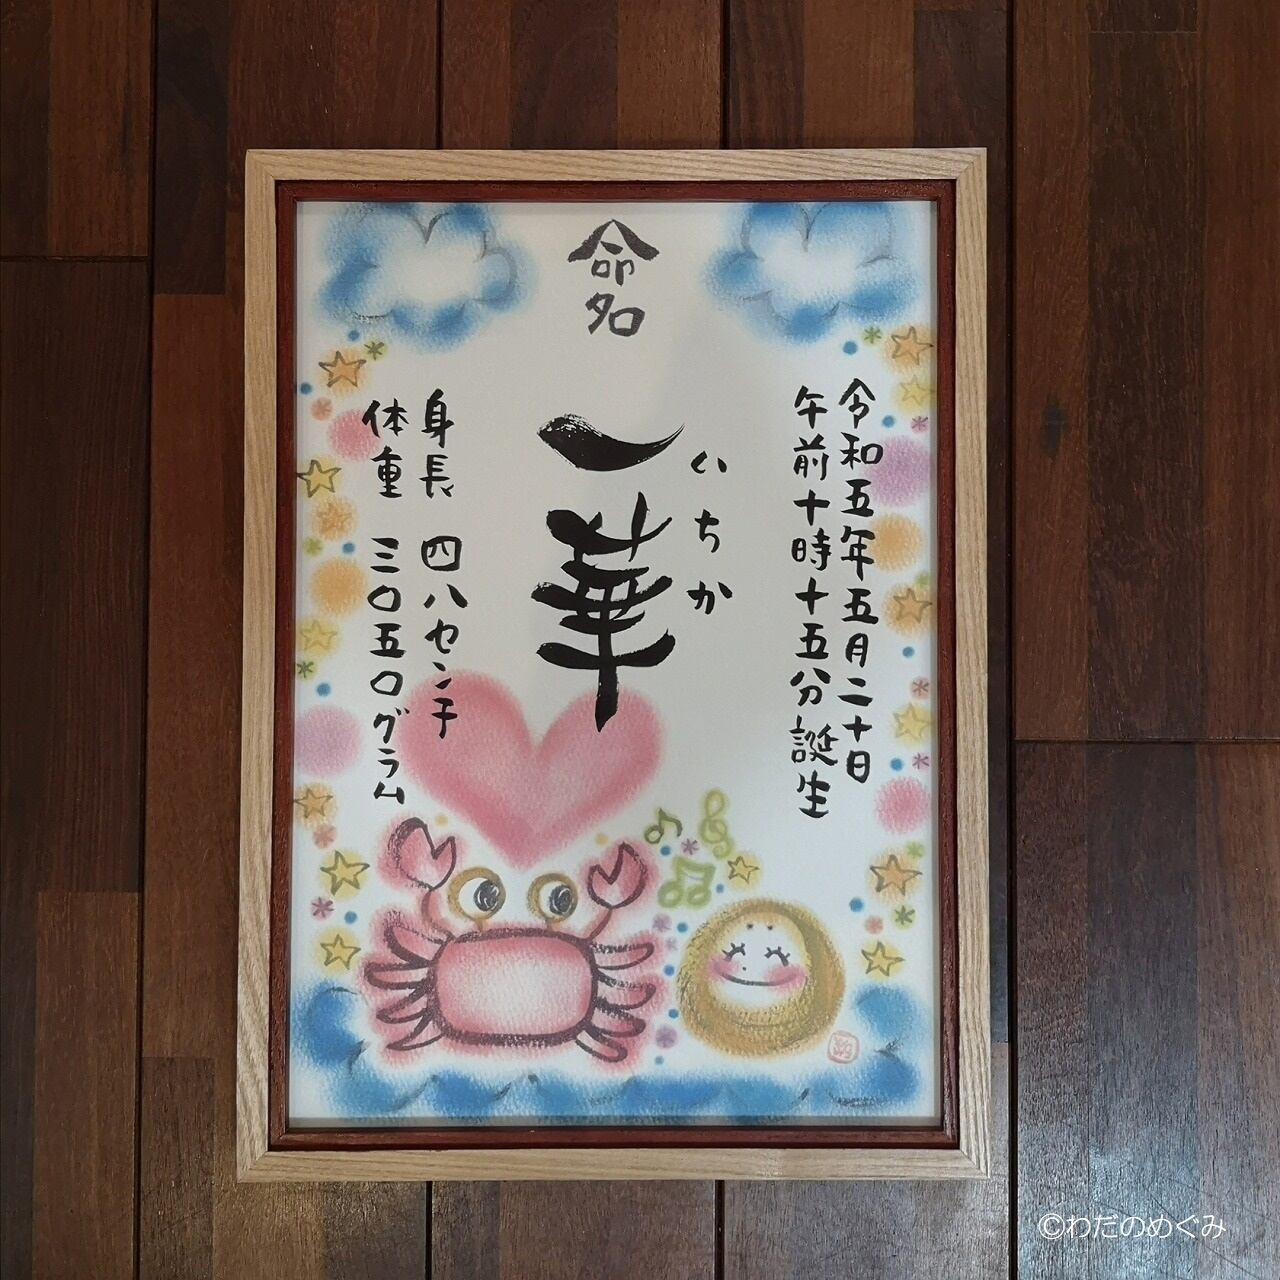 命名
令和五年五月二十日
午前十時十五分誕生
いちか
一華
身長 四八センチ
体重 三〇五〇グラム
©わだのめぐみ